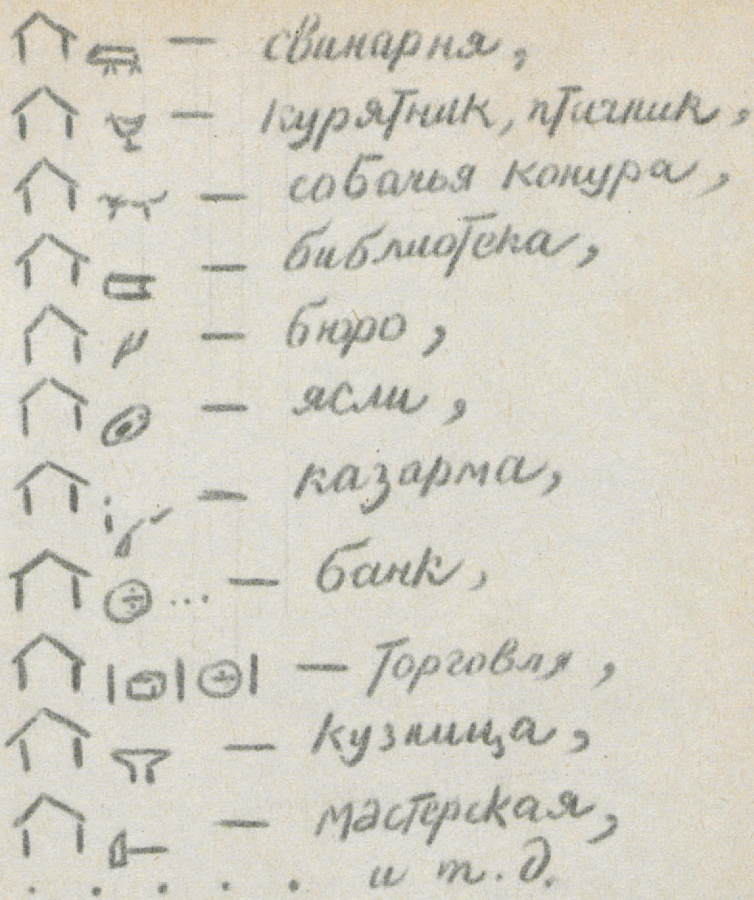 — свинарня,
— курятник, птичник,
— собачья конура,
— библиотека,
— бюро,
— ясли,
— казарма,
... — банк,
— торговля,
— кузница,
— мастерская,
. . . . . и т. д.